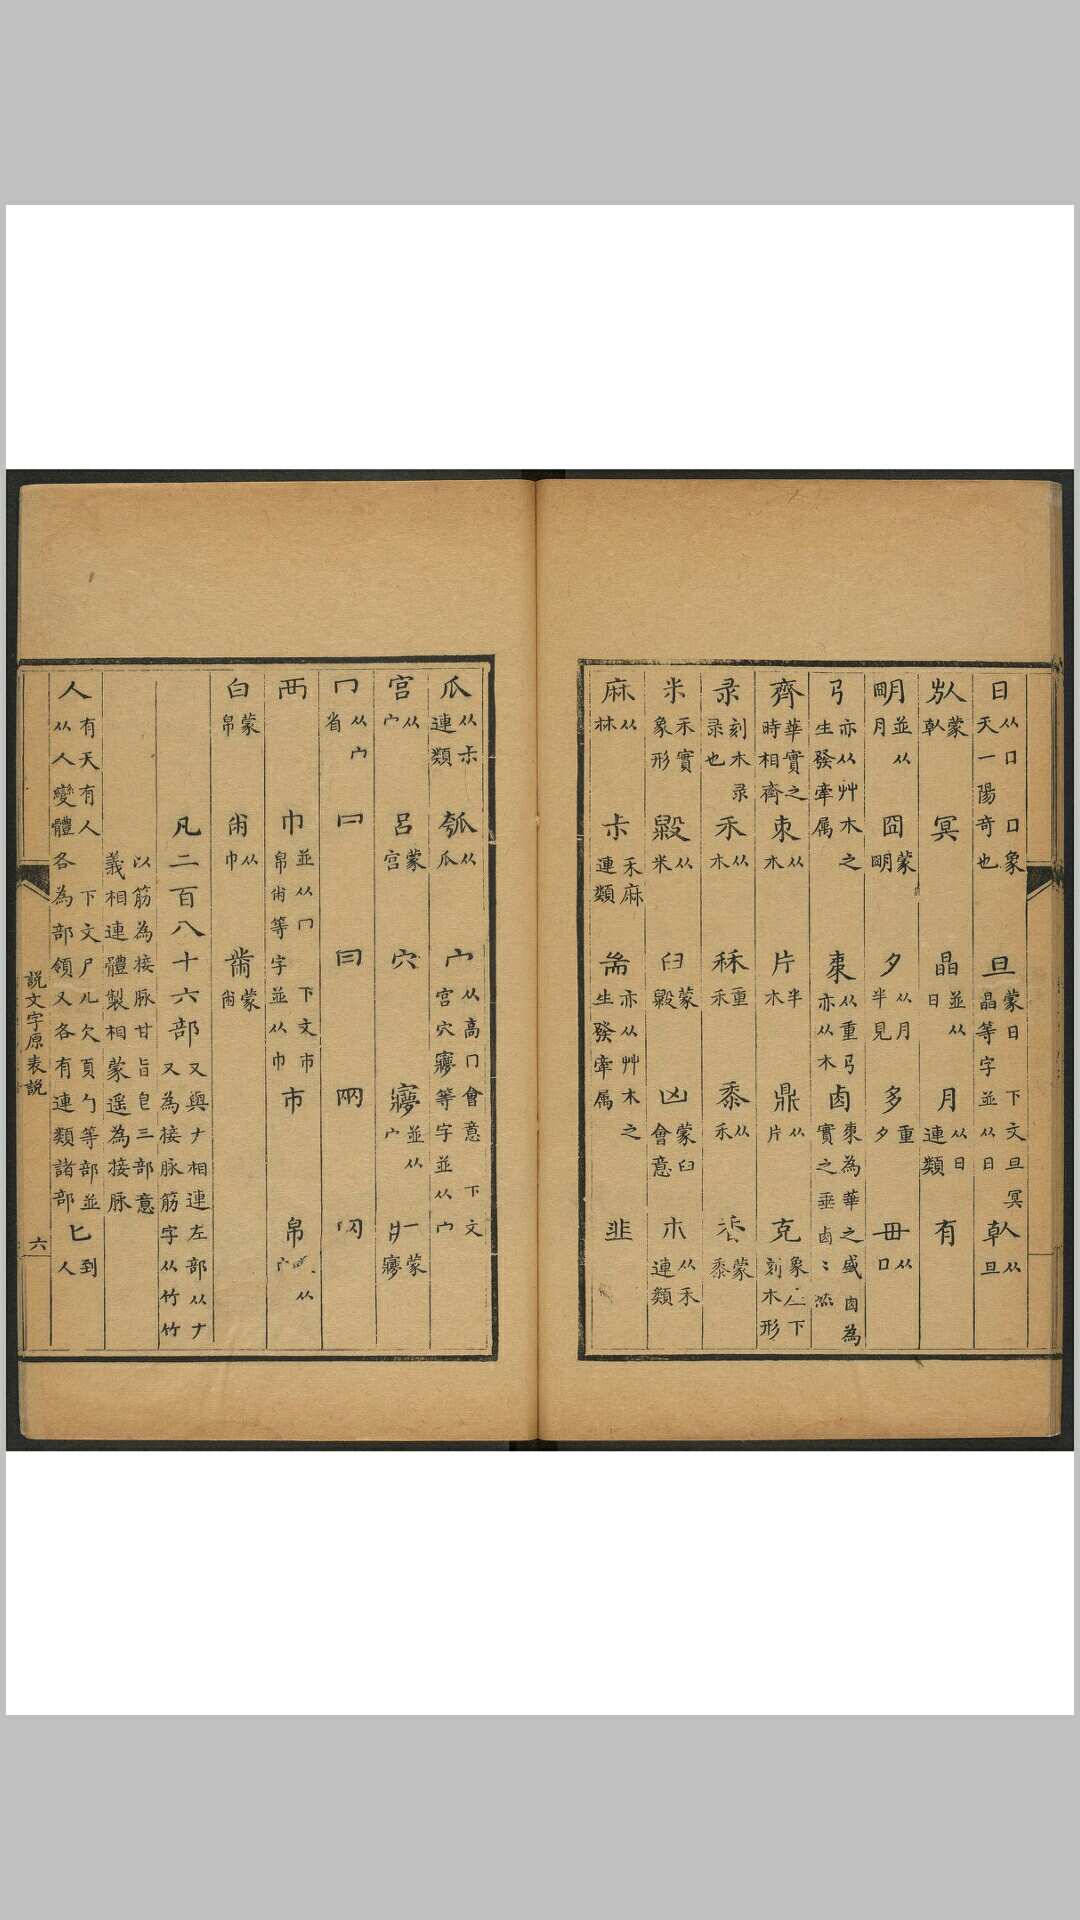 日从囗一天陽奇也囗象 冥 旦蒙日晶等字並从日下文旦冥 倝从旦
㫃蒙倝 晶並从日 月从日連類 有
朙並从月 囧蒙朙 夕从月半見 多重夕 毌从口
𢎘亦从艸木之生發牽属 㯥从重𢎘亦从木 卤㯥為華之盛卤為實之垂卤
齊華實之時相齊 朿从木 片半木 鼎从片 克象下刻木形
彔刻木彔彔也 禾从木 秝重禾 黍从禾 香蒙黍
米禾實象形 毇从米 臼蒙毇 凶蒙臼會意 朩从禾連類
麻从林 尗禾麻連類 耑亦从艸木之生發牽属 韭
瓜从尗連類 瓠从瓜 宀从高冂會意下文宮穴㝱等字並从宀
宮从宀 呂蒙宮 穴 㝱並从宀 疒一蒙㝱
冖从宀省 冃 冃 㒳 网
襾 巾並从冂帛㡀等字並从巾下文巿 巿 帛从
白蒙帛 㡀从巾 黹蒙㡀
凡二百八十六部又與𠂇相連左部从𠂇又為接脉筋字从竹竹
以筋為接脉甘旨皀三部意
義相連體製相蒙遥為接脉
人有天有人从人變體各為部領又各有連類諸部下文尸儿欠頁勹等部並 匕到人
說文字原表說
六